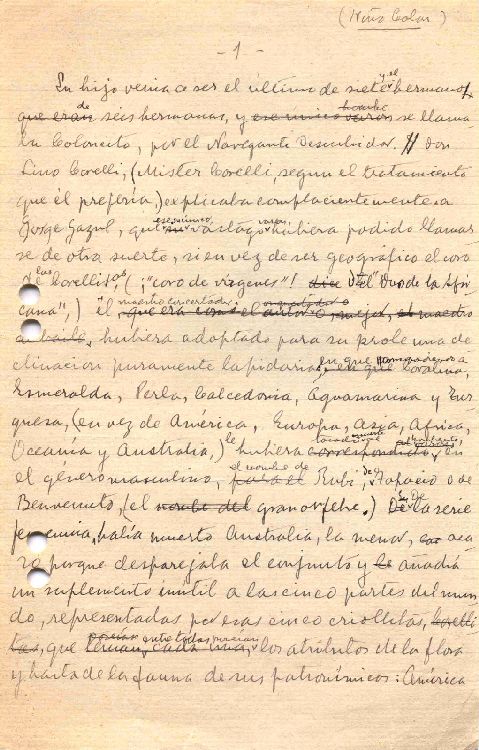 (Niño Colón)
- 1 -
Su hijo venía a ser el último de siete y el hermanos,
que eran de seis hermanas, y ese único varón hombre se llama
ba Coloncito, por el Navegante Descubridor. Don
Lino Covelli, (Mister Covelli, según el tratamiento
que él prefería,) explicaba complacientemente a
Jorge Gazul, que su ese único vástago varón hubiera podido llamar
se de otra suerte, si en vez de ser geográfico el coro
de las Covellitas, (¡"coro de vírgenes"! del "Duo de la Afri
cana",) él, maestro concertador, que era como el autor o mejor, el maestro
hubiera adoptado para su prole una de
clinación puramente lapidaria, en que
Esmeralda, Perla, Calcedonia, Aguamarina y Tur
quesa, (en vez de América, Europa, Asia, Africa,
Oceanía y Australia,) le hubiera correspondido en
el género masculino, el nombre de Rubí, de Topacio o de
Benvenuto, (el gran orfebre.) De la serie
femenina, había muerto Australia, la menor, aca
so porque desparejaba el conjunto y le añadía
un suplemento inútil a las cinco partes del mun
do, representadas por esas cinco criollitas, Covelli
tas, que tenían, cada una, entre todas los atributos de la flora
y hasta de la fauna de sus patronímicos: América